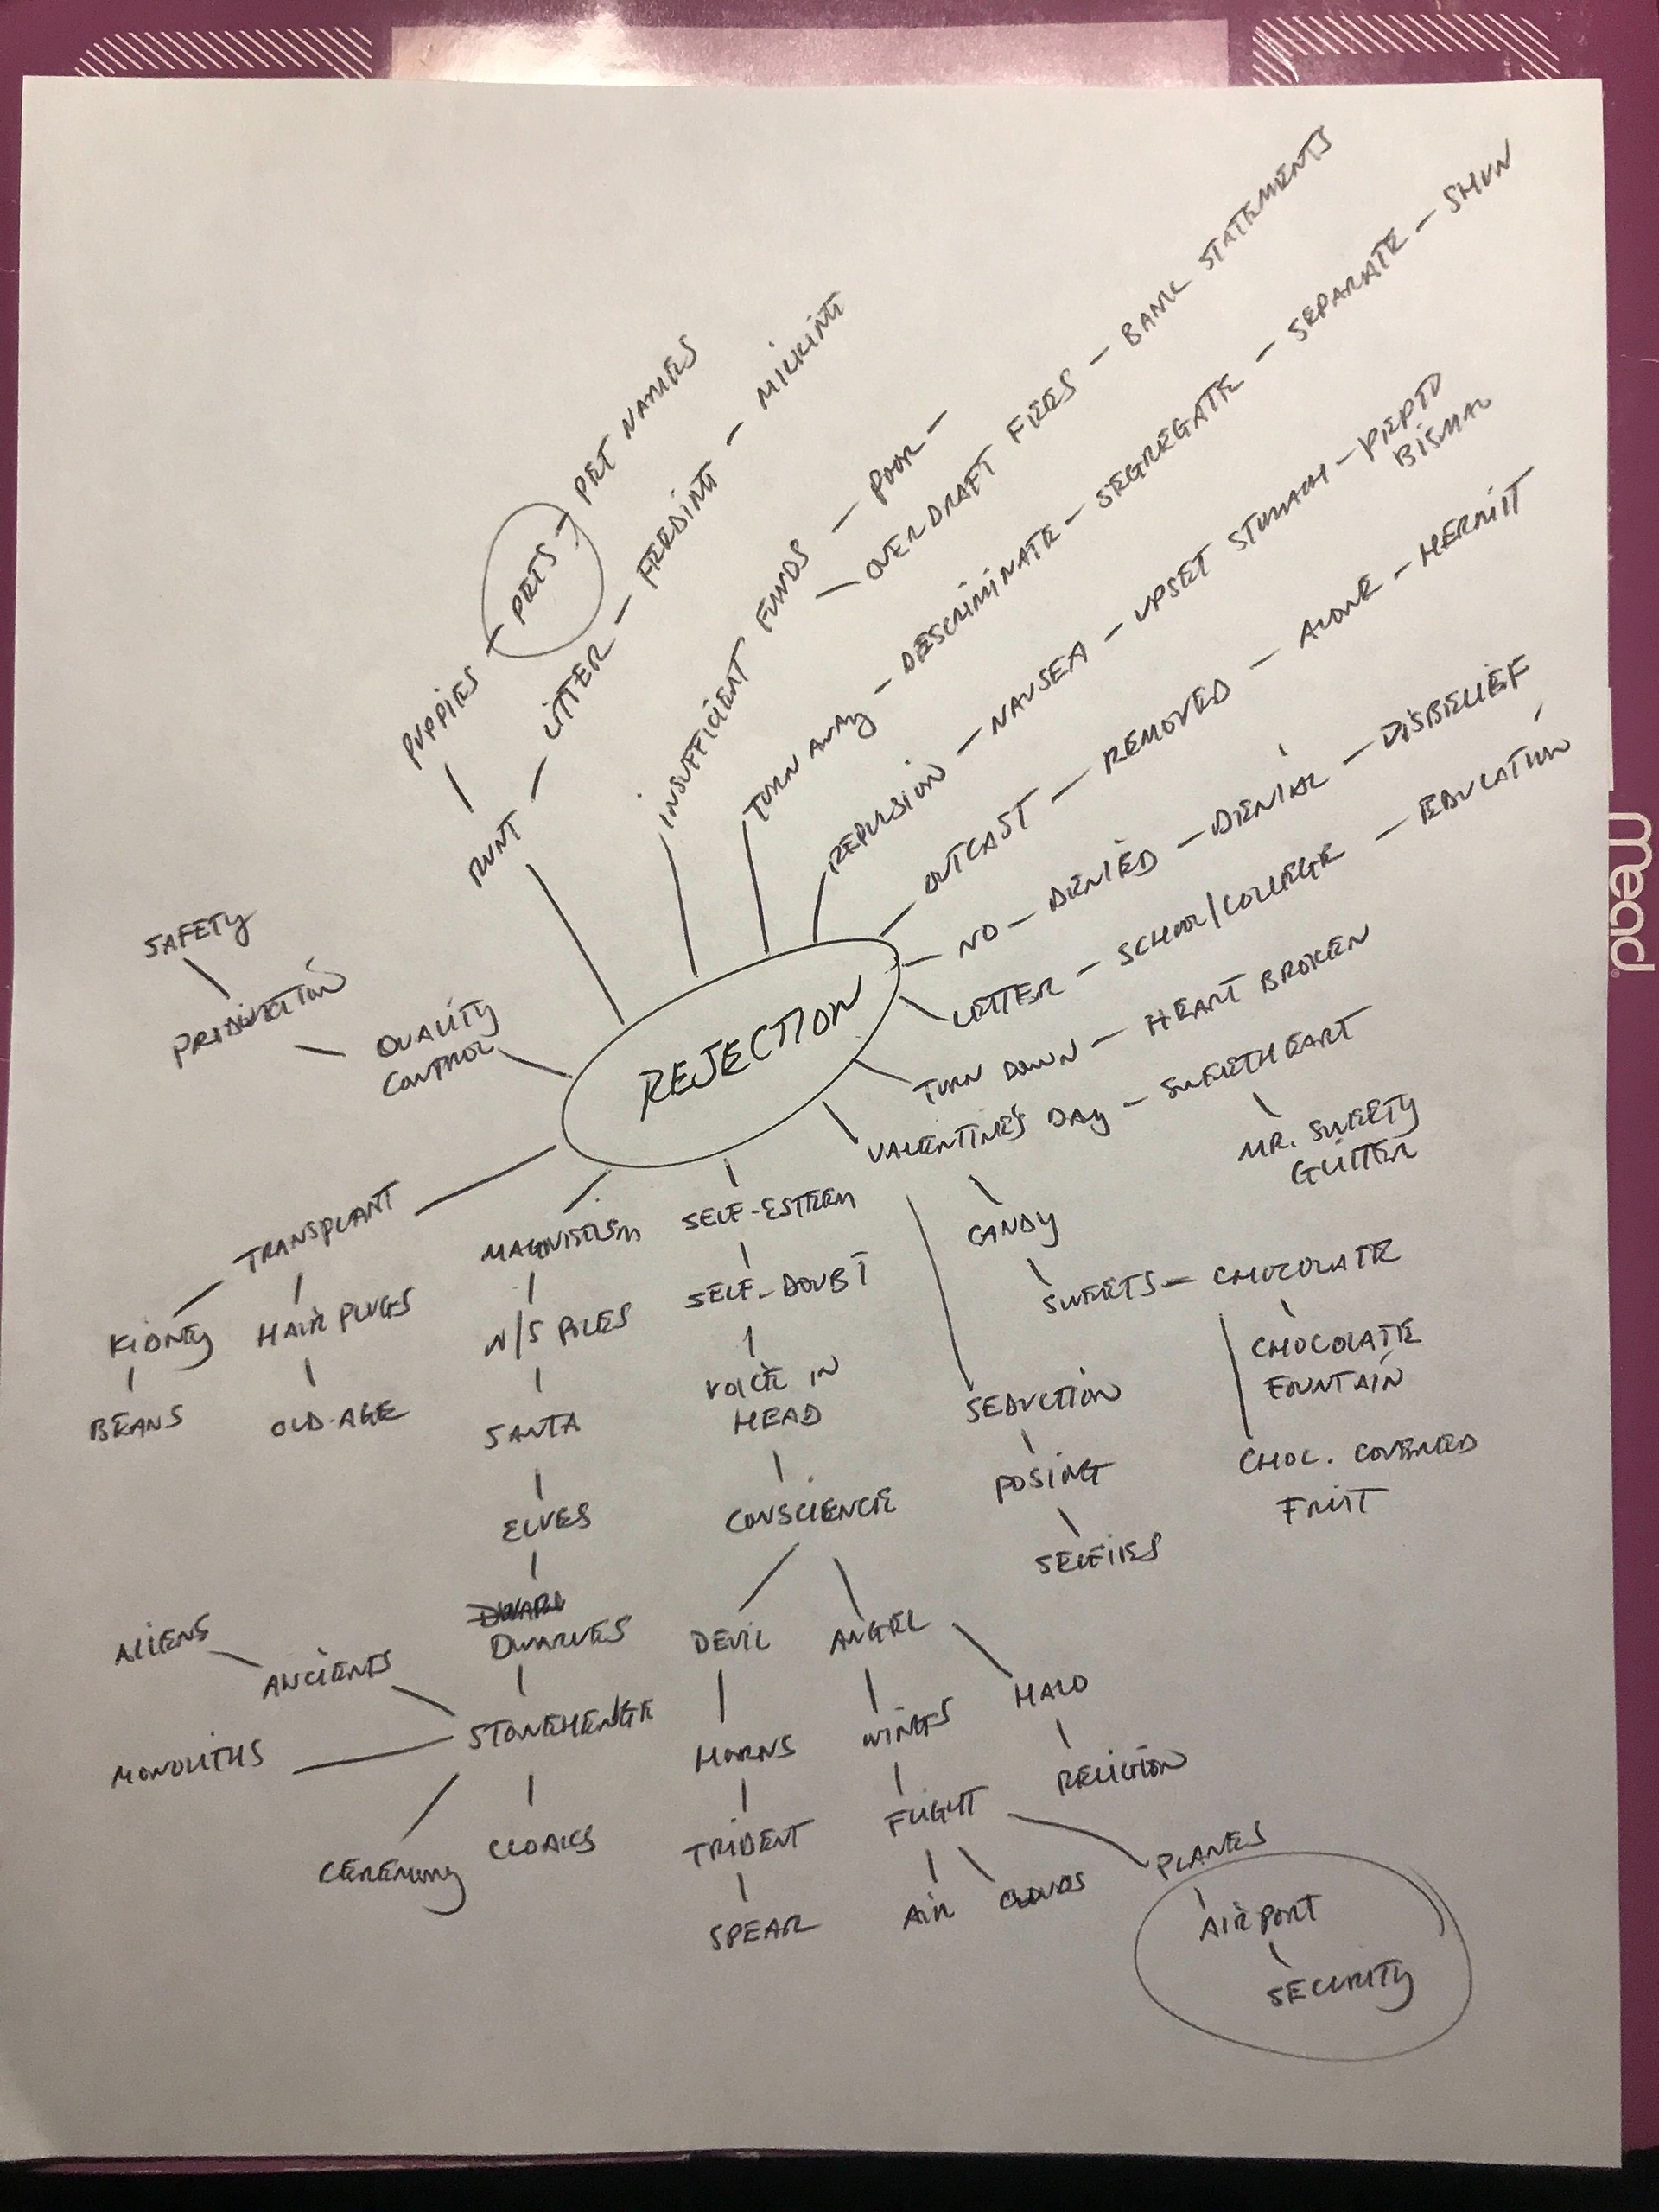 REJECTION
RUNT
PUPPIES - PETS - PET NAMES
LITTER - FEEDING - MILKING
INSUFFICIENT FUNDS - POOR -
OVERDRAFT FEES - BANK STATEMENTS
TURN AWAY - DESCRIMINATE - SEGREGATE - SEPARATE - SHUN
REPULSION - NAUSEA - UPSET STOMACH - PEPTO
BISMAL
OUTCAST - REMOVED - ALONE - HERMIT
NO - DENIED - DENIAL - DISBELIEF
LETTER - SCHOOL/COLLEGE - EDUCATION
TURN DOWN - HEART BROKEN
VALENTINE'S DAY - SWEETHEART
MR. SWEETY
GLITTER
CANDY
SWEETS - CHOCOLATE
CHOCOLATE
FOUNTAIN
CHOC. COVERED
FRUIT
SEDUCTION
POSING
SELFIES
SELF-ESTEEM
SELF-DOUBT
VOICE IN
HEAD
CONSCIENCE
DEVIL
HORNS
TRIDENT
SPEAR
ANGEL
WINGS
FLIGHT
AIR
CLOUDS
PLANES
AIRPORT
SECURITY
HALO
RELIGION
MAGNETISM
N/S POLES
SANTA
ELVES
DWARVES
STONEHENGE
ANCIENTS
ALIENS
MONOLITHS
CEREMONY
CLOAKS
TRANSPLANT
KIDNEY
BEANS
HAIR PLUGS
OLD-AGE
QUALITY
CONTROL
PRODUCTION
SAFETY
Mead